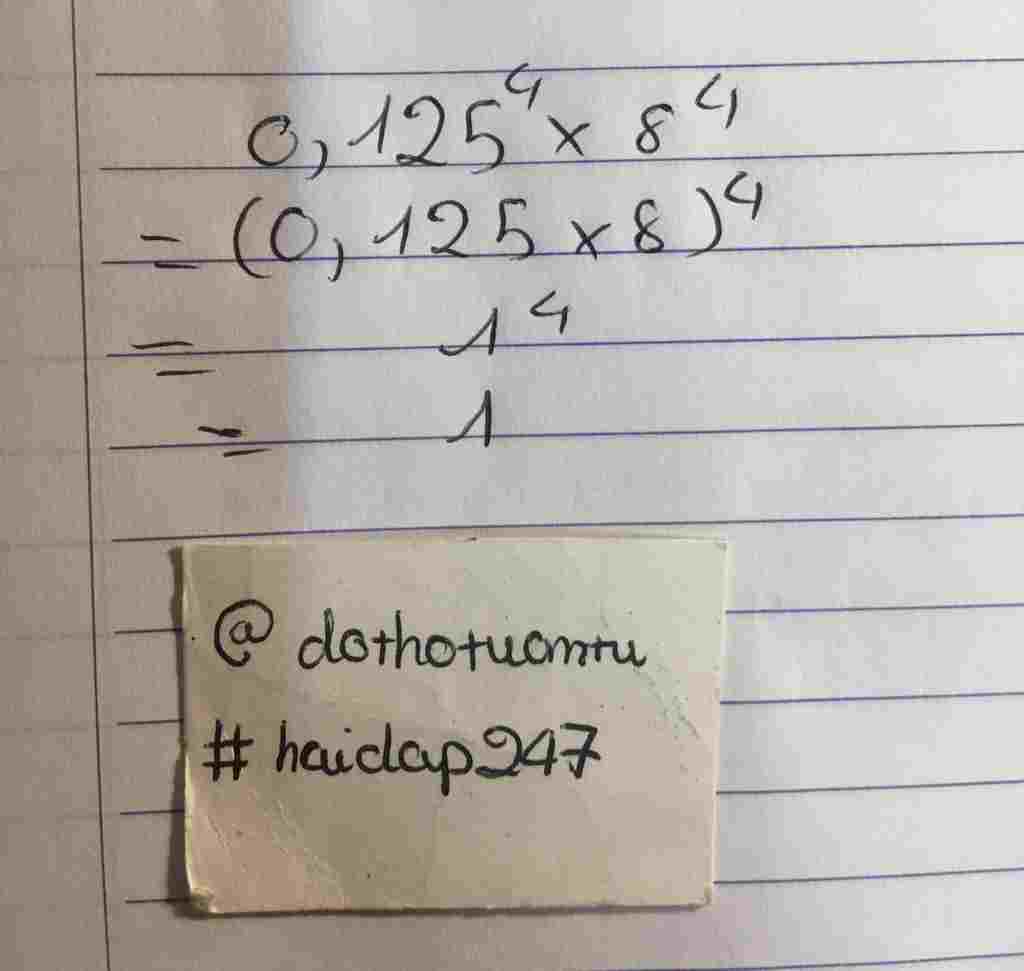 0,125⁴ × 8⁴
= (0,125 × 8)⁴
= 1⁴
= 1
@dothotuantu
#haidap247